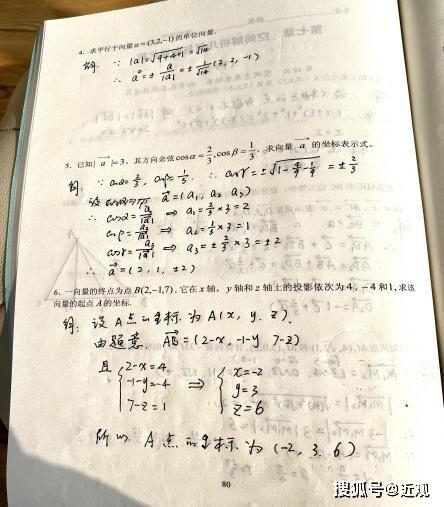 4. 求平行于向量 a = (3,2,−1) 的单位向量.
解: ∵ |a| = √(9+4+1) = √14
∴ a° = ± a/|a| = ± 1/√14 (3, 2, −1)
5. 已知| a |=3，其方向余弦 cosα = 2/3, cosβ = 1/3，求向量 a 的坐标表示式。
解: ∵ cosα = 2/3, cosβ = 1/3. ∴ cosγ = ±√(1 − 4/9 − 1/9) = ± 2/3
a = (a₁, a₂, a₃)
∴ cosα = a₁/|a| ⇒ a₁ = 2/3 × 3 = 2
cosβ = a₂/|a| ⇒ a₂ = 1/3 × 3 = 1
cosγ = a₃/|a| ⇒ a₃ = ± 2/3 × 3 = ±2
∴ a = (2, 1, ±2)
6. 一向量的终点为点 B(2,−1,7)，它在 x 轴，y 轴和 z 轴上的投影依次为 4，−4 和 1, 求该
向量的起点 A 的坐标.
解: 设 A 点的坐标为 A(x, y, z).
由题意 AB = (2−x, −1−y, 7−z)
且 2−x = 4 ⇒ x = −2
−1−y = −4 y = 3
7−z = 1 z = 6
所以 A 点的坐标为 (−2, 3, 6)
80
搜狐号@近观